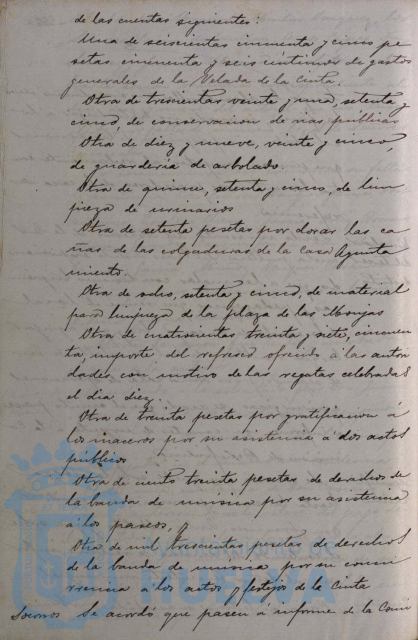 de las cuentas siguientes:
Una de seiscientas cincuenta y cinco pe
setas cincuenta y seis céntimos de gastos
generales de la Velada de la Cinta.
Otra de trescientas veinte y una, setenta y
cinco, de conservacion de vias publicas
Otra de diez y nueve, veinte y cinco,
de guarderia de arbolado.
Otra de quince, setenta y cinco, de lim
pieza de urinarios
Otra de setenta pesetas por dorar las ca
ñas de las colgaduras de la Casa Ayunta
miento.
Otra de ocho, setenta y cinco, de material
para limpieza de la plaza de las Monjas
Otra de cuatrocientas treinta y siete, cincuen
ta, importe del refresco ofrecido á las autori
dades con motivo de las regatas celebradas
el dia diez.
Otra de treinta pesetas por gratificacion á
los maceros por su asistencia á dos actos
públicos
Otra de ciento treinta pesetas de derechos de
la banda de música por su asistencia
á los paseos, y
Otra de mil trescientas pesetas de derechos
de la banda de música por su concu
rrencia á los actos y festejos de la Cinta
Socorros Se acordó que pasen á informe de la Comi
HUELVA